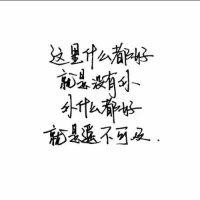 这里什么都好
就是没有你、
外什么都好
就是遥不可及.